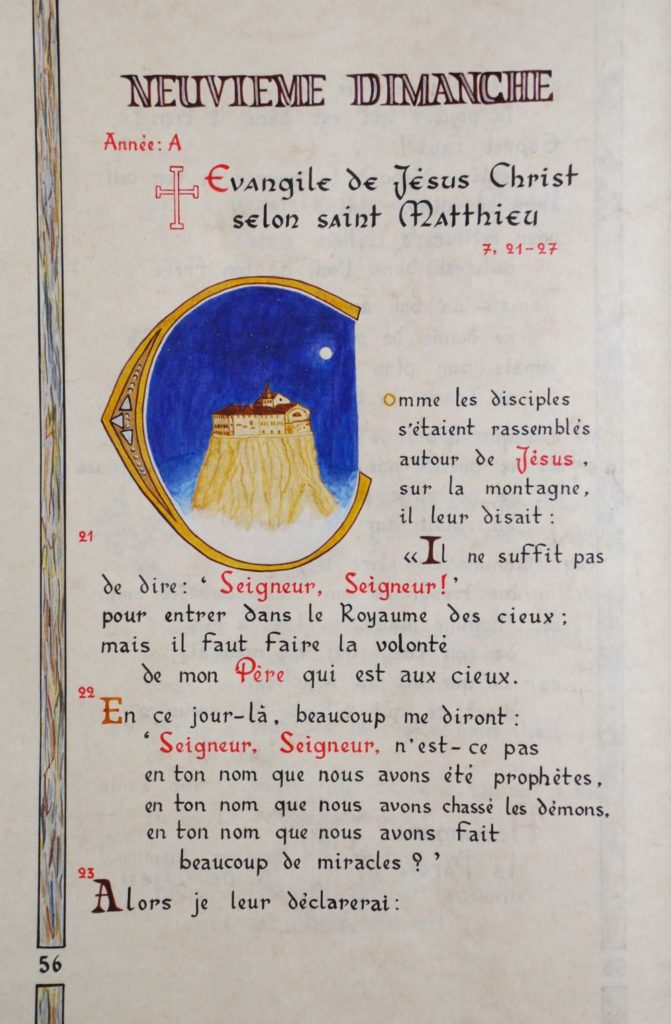 NEUVIEME DIMANCHE
Année: A
Evangile de Jésus Christ
selon saint Matthieu
7, 21-27
Comme les disciples
s'étaient rassemblés
autour de Jésus,
sur la montagne,
il leur disait:
21
«Il ne suffit pas
de dire: ‘Seigneur, Seigneur!’
pour entrer dans le Royaume des cieux;
mais il faut faire la volonté
de mon Père qui est aux cieux.
22
En ce jour-là, beaucoup me diront:
‘Seigneur, Seigneur, n'est-ce pas
en ton nom que nous avons été prophètes,
en ton nom que nous avons chassé les démons,
en ton nom que nous avons fait
beaucoup de miracles?’
23
Alors je leur déclarerai:
56